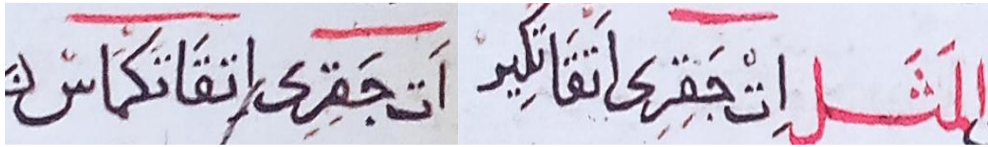 المَثَل اِتْ جَقِرِى اَتَقَاتَكِير اَت جَقِرِى اِتَقَاتَكَمَاسْ